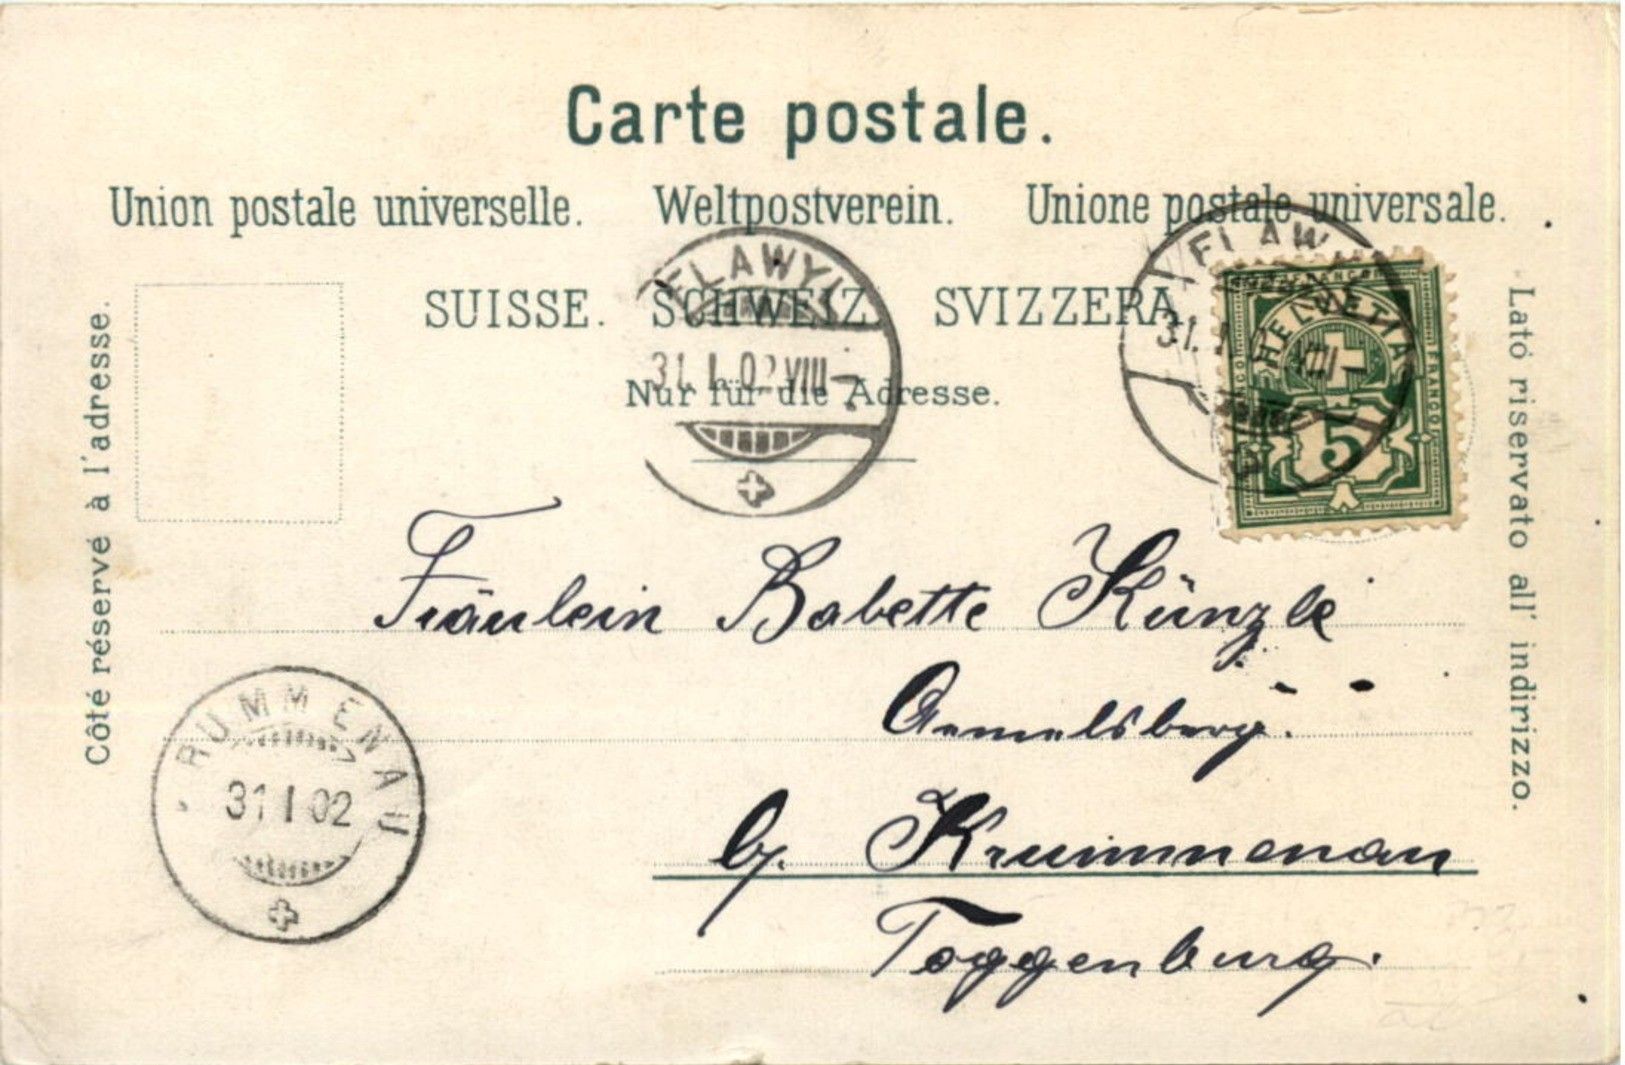 Carte postale.
Union postale universelle. Weltpostverein. Unione postale universale.
SUISSE. SCHWEIZ SVIZZERA
Nur für die Adresse.
Côté réservé à l'adresse.
Lato riservato all' indirizzo.
FLAWYL
31. I. 02 VIII-
FLAWYL
31. I VIII-
HELVETIA
FRANCO
5
Fräulein Babette Künzle
b/. Krummenau
Toggenburg.
KRUMMENAU
31 I 02